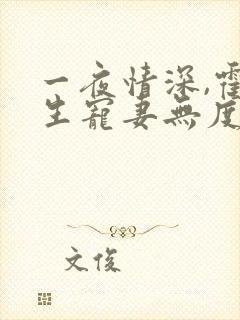 一夜情深,霍
生寵妻無度
文俊